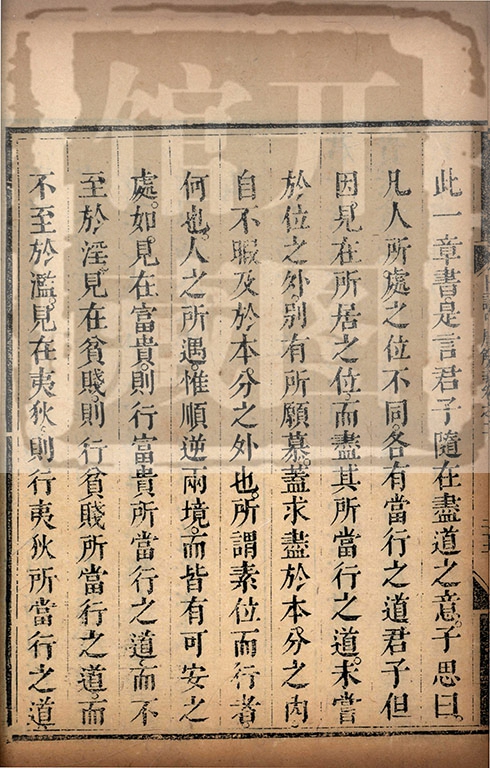 此一章書。是言君子隨在盡道之意。子思曰。
凡人所處之位不同。各有當行之道。君子但
因見在所居之位。而盡其所當行之道。未嘗
於位之外。別有所願慕。蓋求盡於本分之內
自不暇及於本分之外也。所謂素位而行者
何也。人之所遇。惟順逆兩境。而皆有可安之
處。如見在富貴。則行富貴所當行之道。而不
至於淫。見在貧賤。則行貧賤所當行之道。而
不至於濫。見在夷狄。則行夷狄所當行之道